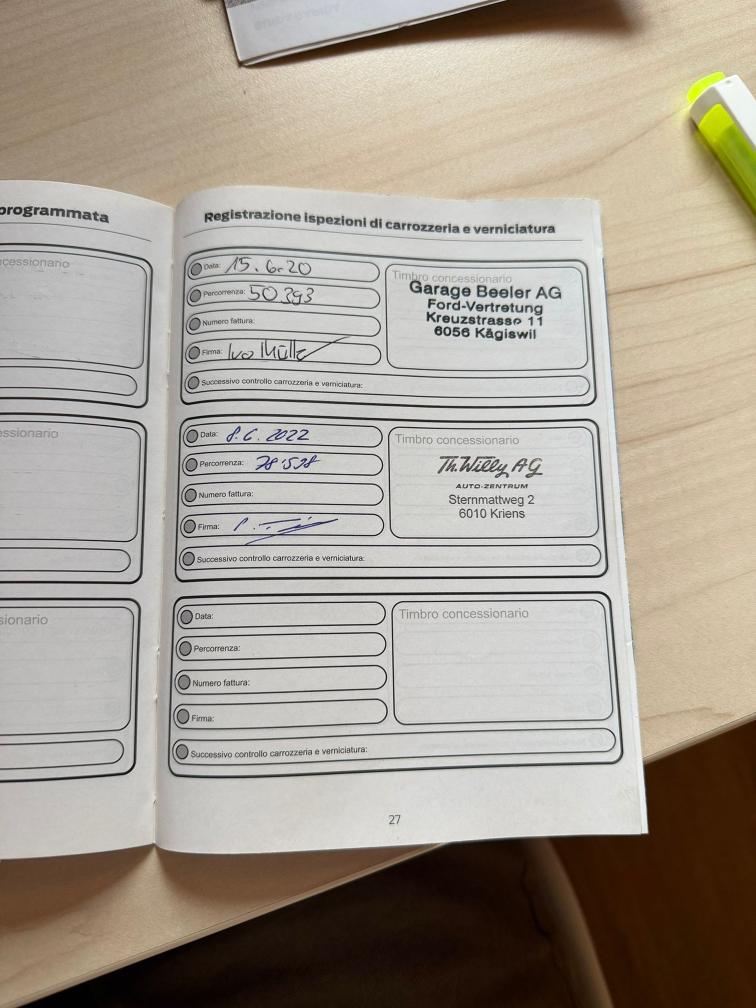 programmata
cessionario
essionario
sionario
Registrazione ispezioni di carrozzeria e verniciatura
Data: 15.6.20
Percorrenza: 50393
Numero fattura:
Firma: Ivo Müll
Successivo controllo carrozzeria e verniciatura:
Timbro concessionario
Garage Beeler AG
Ford-Vertretung
Kreuzstrasse 11
6056 Kägiswil
Data: 8.6.2022
Percorrenza: 78'538
Numero fattura:
Firma:
Successivo controllo carrozzeria e verniciatura:
Timbro concessionario
Th. Willy AG
AUTO-ZENTRUM
Sternmattweg 2
6010 Kriens
Data:
Percorrenza:
Numero fattura:
Firma:
Successivo controllo carrozzeria e verniciatura:
Timbro concessionario
27